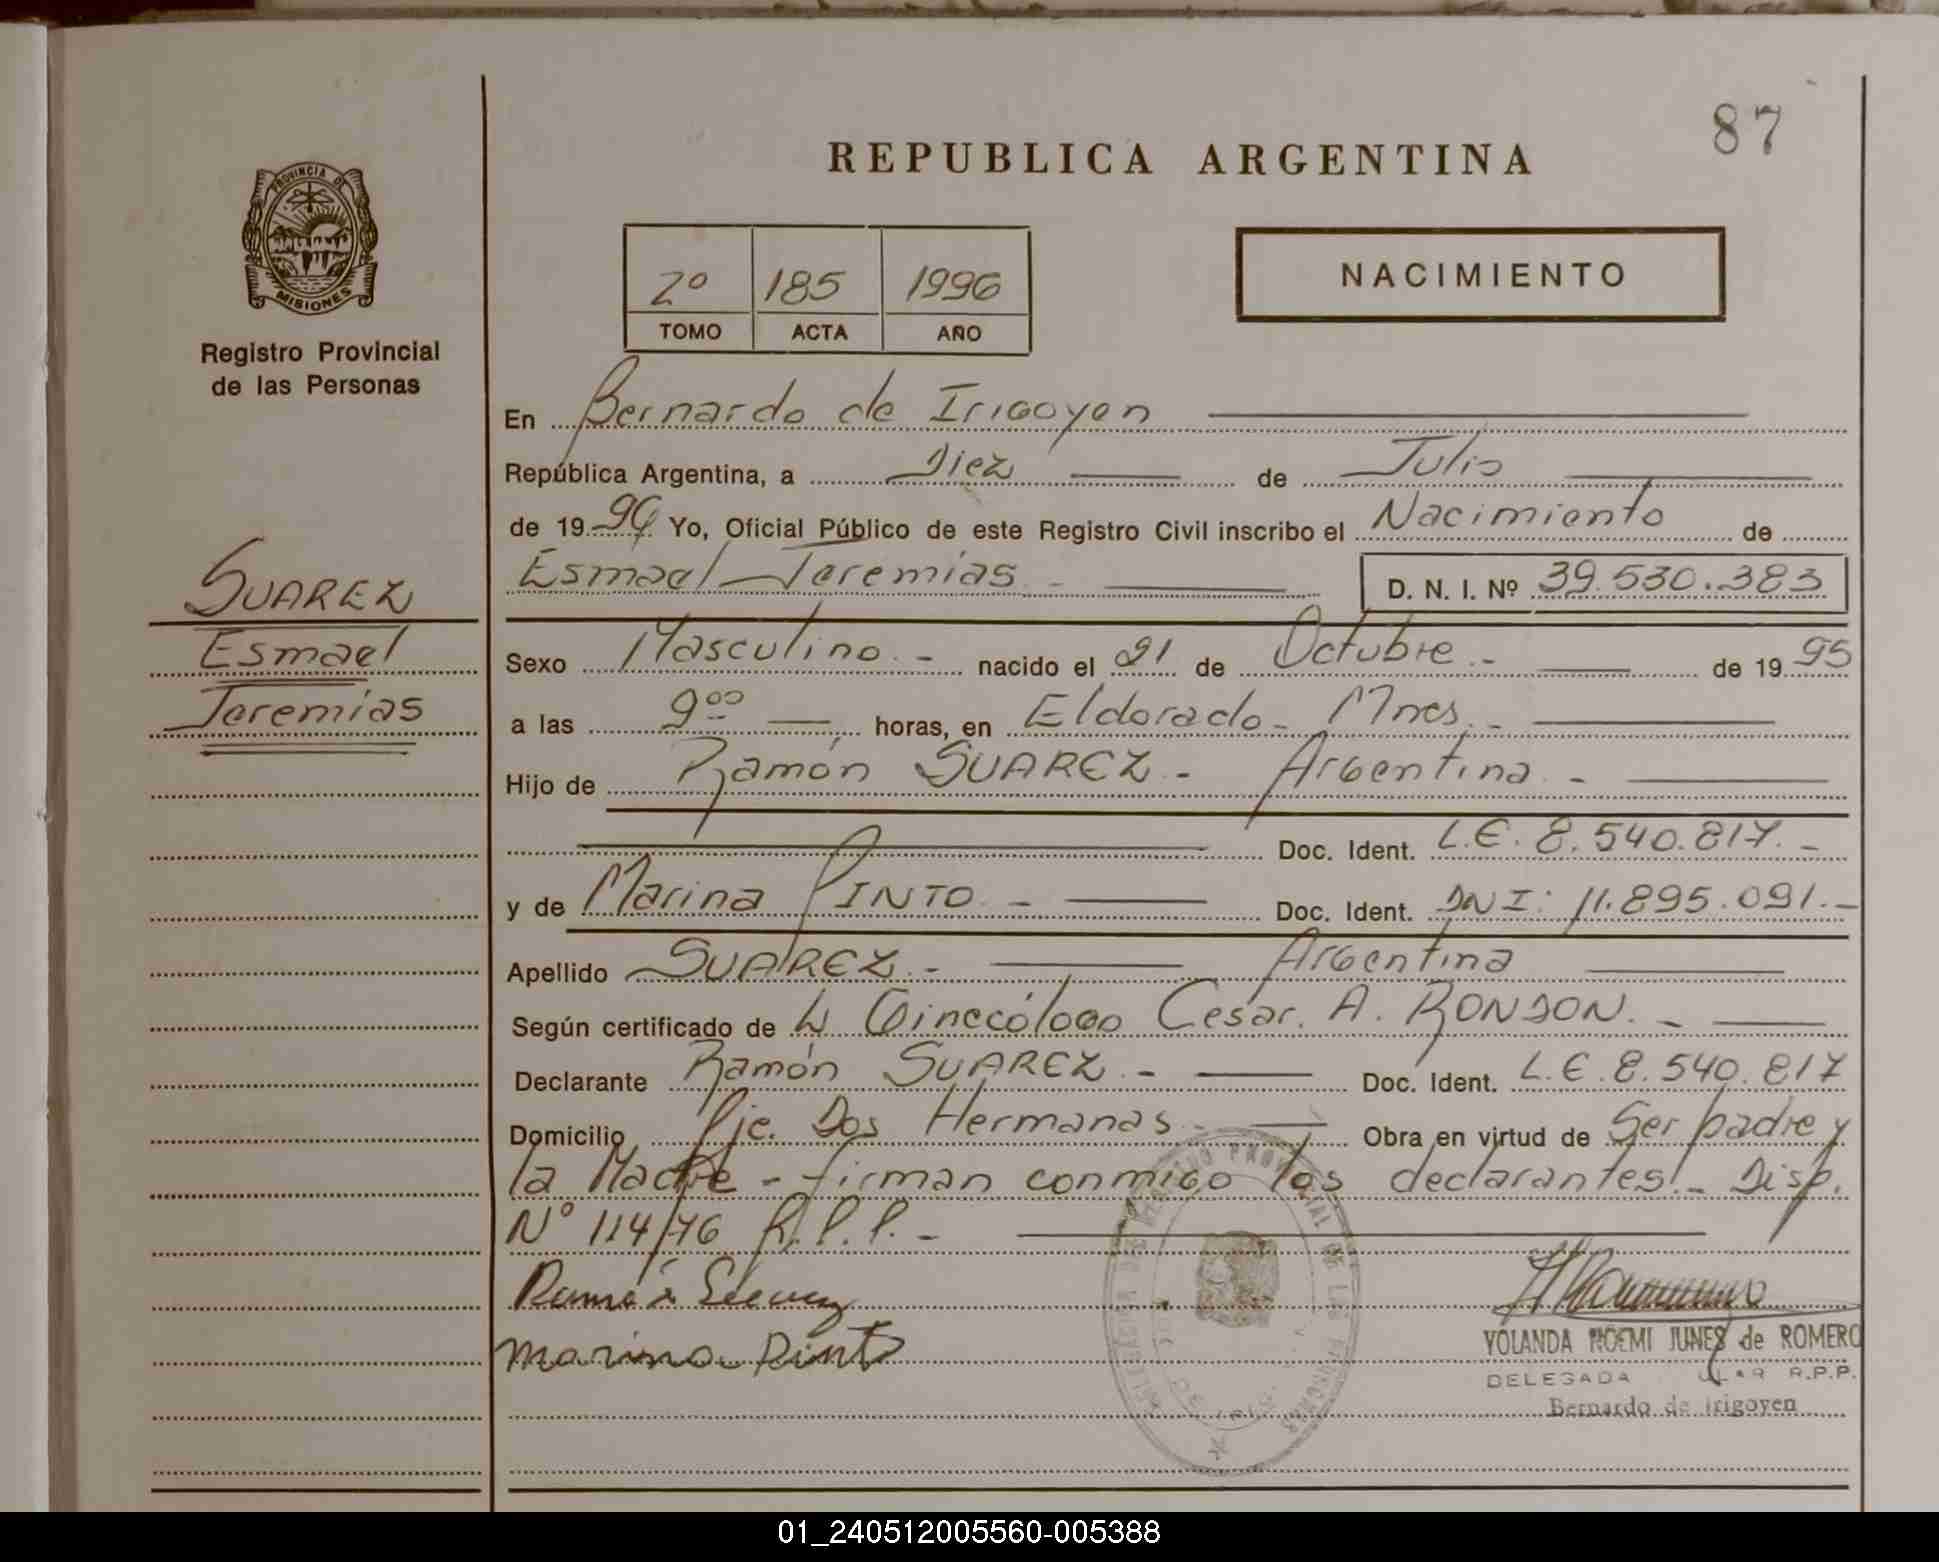 87
REPUBLICA ARGENTINA
PROVINCIA DE
MISIONES
Registro Provincial
de las Personas
2º 185 1996
TOMO ACTA AÑO
NACIMIENTO
En Bernardo de Irigoyen
República Argentina, a Diez de Julio
de 1996 Yo, Oficial Público de este Registro Civil inscribo el Nacimiento de
Esmael Jeremías. - D. N. I. Nº 39.530.383
SUAREZ
Esmael
Jeremías
Sexo Masculino. - nacido el 21 de Octubre. - de 1995
a las 9 00 horas, en Eldorado - Mnes. -
Hijo de Ramón SUAREZ. - Argentina. -
Doc. Ident. L.E. 8.540.817. -
y de Marina PINTO. - Doc. Ident. DNI: 11.895.091. -
Apellido SUAREZ. - Argentina
Según certificado de Ginecólogo Cesar. A. RONDON. -
Declarante Ramón SUAREZ. - Doc. Ident. L.E. 8.540.817
Domicilio Pje. Dos Hermanas. - Obra en virtud de Ser padre y
la Madre - firman conmigo los declarantes. - Disp.
Nº 114/76 R.P.P. -
Ramón Suarez
Marina Pinto
YOLANDA NOEMI JUNES de ROMERO
DELEGADA R.P.P.
Bernardo de Irigoyen
01_240512005560-005388